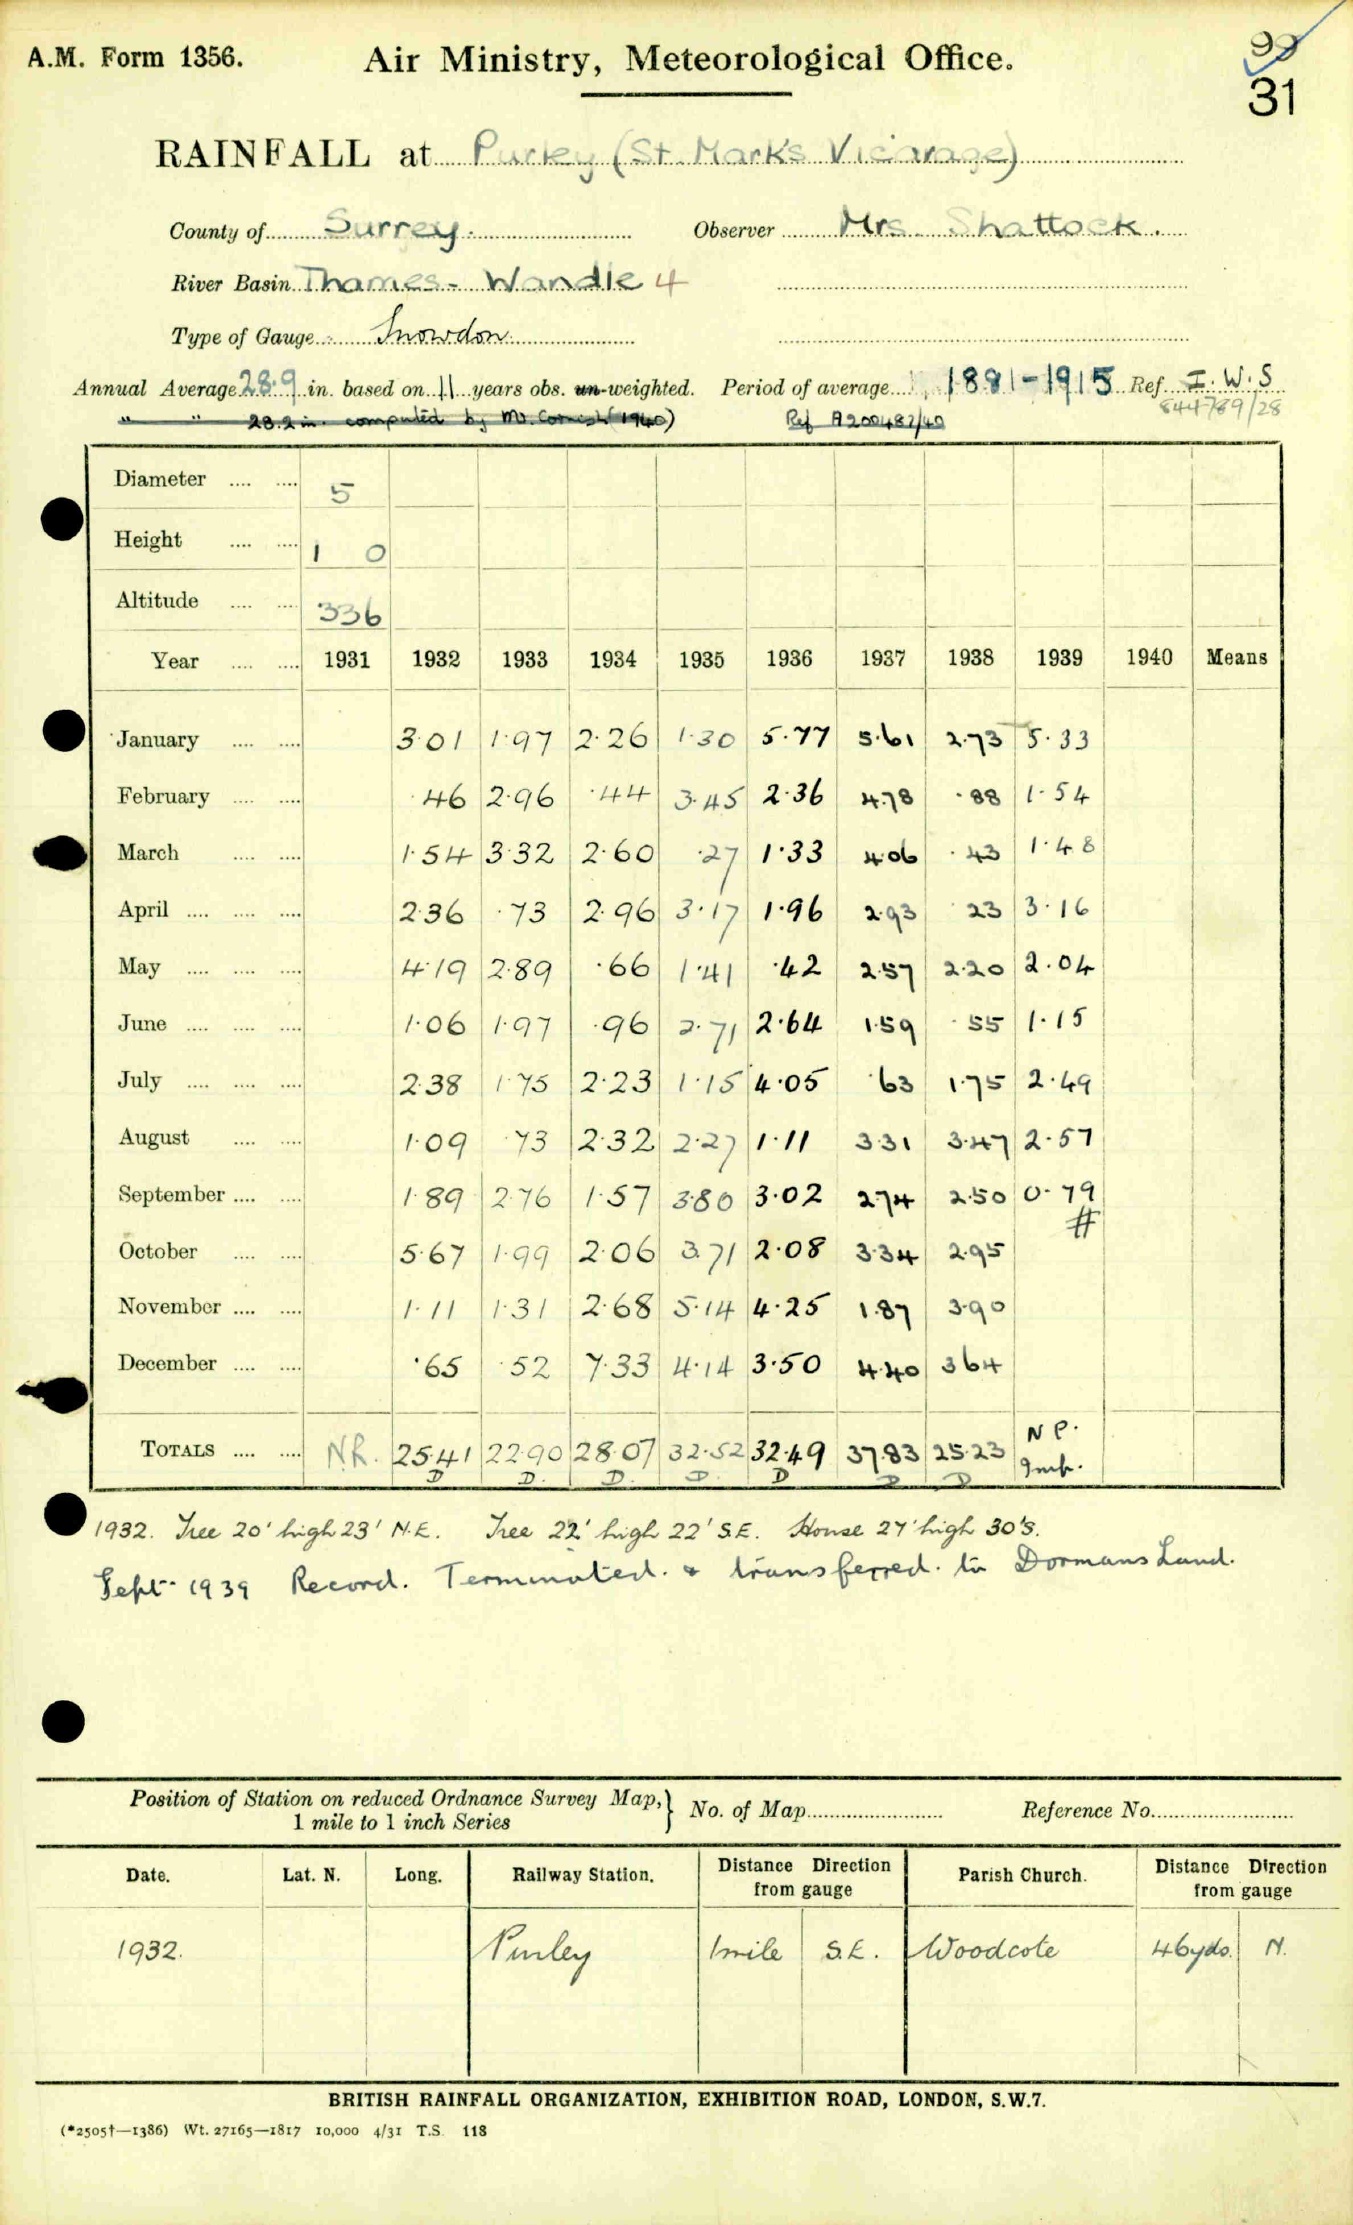 A.M. Form 1356. Air Ministry, Meteorological Office. 99
31
RAINFALL at Purley (St. Mark's Vicarage)
County of Surrey. Observer Mrs. Shattock.
River Basin Thames - Wandle 4
Type of Gauge Snowdon
Annual Average 28.9 in. based on 11 years obs. un-weighted. Period of average 1881-1915 Ref. I.W.S
844789/28
" " 28.2 in. computed by Mr. Cornish (1940) Ref A200482/40
Diameter .... .... 5
Height .... .... 1 0
Altitude .... .... 336
Year .... .... 1931 1932 1933 1934 1935 1936 1937 1938 1939 1940 Means
January .... .... 3·01 1·97 2·26 1·30 5·77 5·61 2·73 5·33
February .... .... ·46 2·96 ·44 3·45 2·36 4·78 ·88 1·54
March .... .... 1·54 3·32 2·60 ·27 1·33 4·06 ·43 1·48
April .... .... .... 2·36 ·73 2·96 3·17 1·96 2·93 ·23 3·16
May .... .... .... 4·19 2·89 ·66 1·41 ·42 2·57 2·20 2·04
June .... .... .... 1·06 1·97 ·96 2·71 2·64 1·59 ·55 1·15
July .... .... .... 2·38 1·75 2·23 1·15 4·05 ·63 1·75 2·49
August .... .... 1·09 ·73 2·32 2·27 1·11 3·31 3·47 2·57
September .... .... 1·89 2·76 1·57 3·80 3·02 2·74 2·50 0·79
#
October .... .... 5·67 1·99 2·06 3·71 2·08 3·34 2·95
November .... .... 1·11 1·31 2·68 5·14 4·25 1·87 3·90
December .... .... ·65 ·52 7·33 4·14 3·50 4·40 3·64
TOTALS .... .... N.R. 25·41 22·90 28·07 32·52 32·49 37·83 25·23 N P. Imp.
D D. D. D. D D D
1932. Tree 20' high 23' N.E. Tree 22' high 22' S.E. House 27' high 30' S.
Sept. 1939 Record. Terminated. & transferred. to Dormans Land.
Position of Station on reduced Ordnance Survey Map, } No. of Map Reference No.
1 mile to 1 inch Series
Date. Lat. N. Long. Railway Station. Distance Direction from gauge Parish Church. Distance Direction from gauge
1932. Purley 1 mile S.E. Woodcote 46 yds. N.
BRITISH RAINFALL ORGANIZATION, EXHIBITION ROAD, LONDON, S.W.7.
(*2505†—1386) Wt. 27165—1817 10,000 4/31 T.S. 118